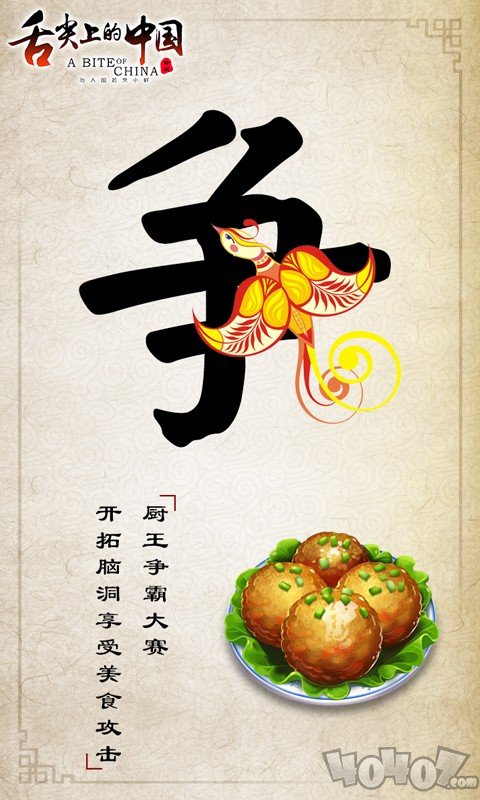 舌尖上的中国
A BITE OF
CHINA
治大国若烹小鲜
争
厨王争霸大赛
开拓脑洞享受美食攻击
40407.com